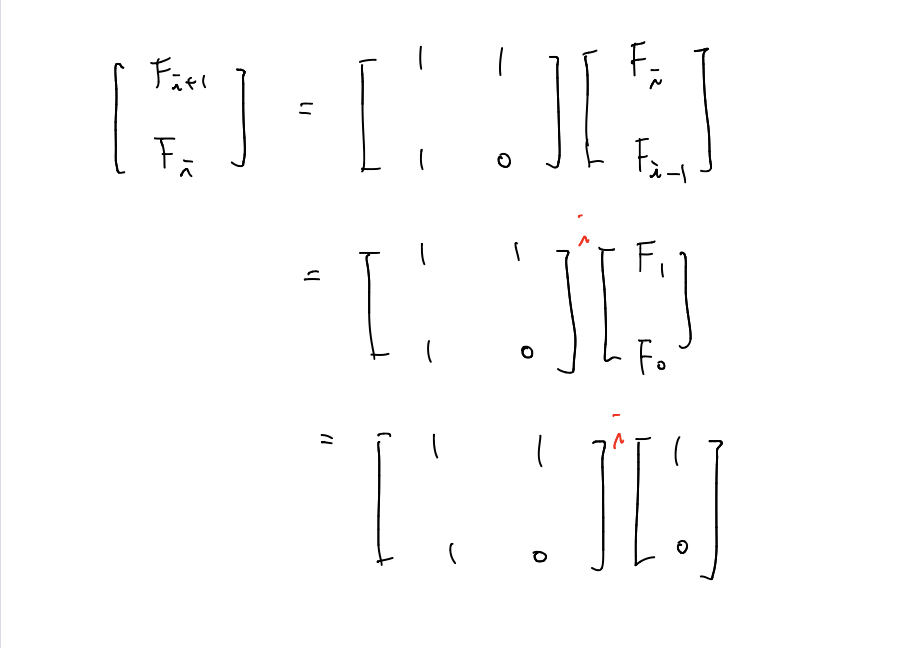 [ F_{i+1} ; F_i ] = [ 1 1 ; 1 0 ] [ F_i ; F_{i-1} ]
= [ 1 1 ; 1 0 ]^i [ F_1 ; F_0 ]
= [ 1 1 ; 1 0 ]^i [ 1 ; 0 ]